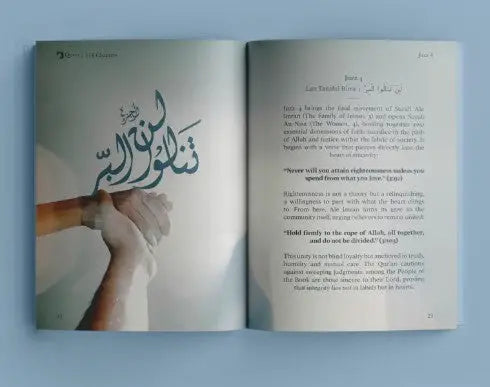 Juz 4
لن
تنالوا البرّ
Juz 4
Lan Tanalul Birra | لَنْ تَنَالُوا الْبِرَّ
Juz 4 brings the final movement of Surah Ale
Imran (The Family of Imran, 3) and opens Surah
An-Nisa (The Women, 4), binding together two
essential dimensions of faith: sacrifice in the path
of Allah and justice within the fabric of society. It
begins with a verse that pierces directly into the
heart of sincerity:
"Never will you attain righteousness unless you
spend from what you love." (3:92)
Righteousness is not a theory but a relinquishing,
a willingness to part with what the heart clings
to. From here, Ale Imran turns its gaze to the
community itself, urging believers to remain united:
"Hold firmly to the rope of Allah, all together,
and do not be divided." (3:103)
This unity is not blind loyalty but anchored in truth,
humility and mutual care. The Qur'an cautions
against sweeping judgments: among the People of
the Book are those sincere to their Lord, proving
that integrity lies not in labels but in hearts.
23